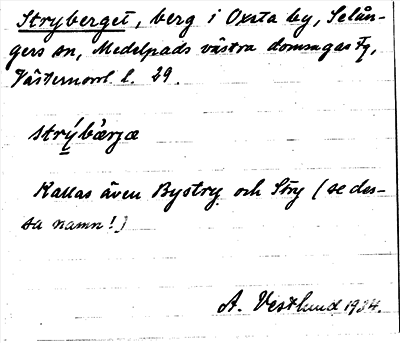 Stryberget, berg i Oxsta by, Selån-
gers sn, Medelpads västra domsagas tg,
Västernorrl. l. 29.
strý̠bæ̀rjæ
Kallas även Bystry och Stry (se des-
sa namn!)
A. Vestlund 1934.